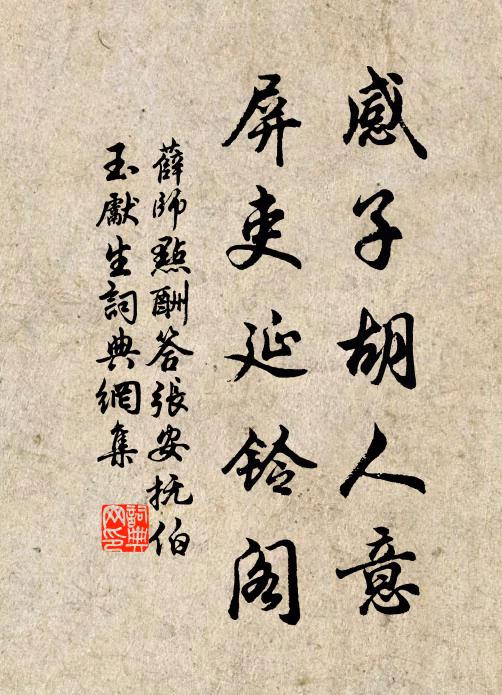 感子胡人意
屏吏延铃阁
薛師點酬答張安抚伯
玉獻生詞典網集
詞典网印